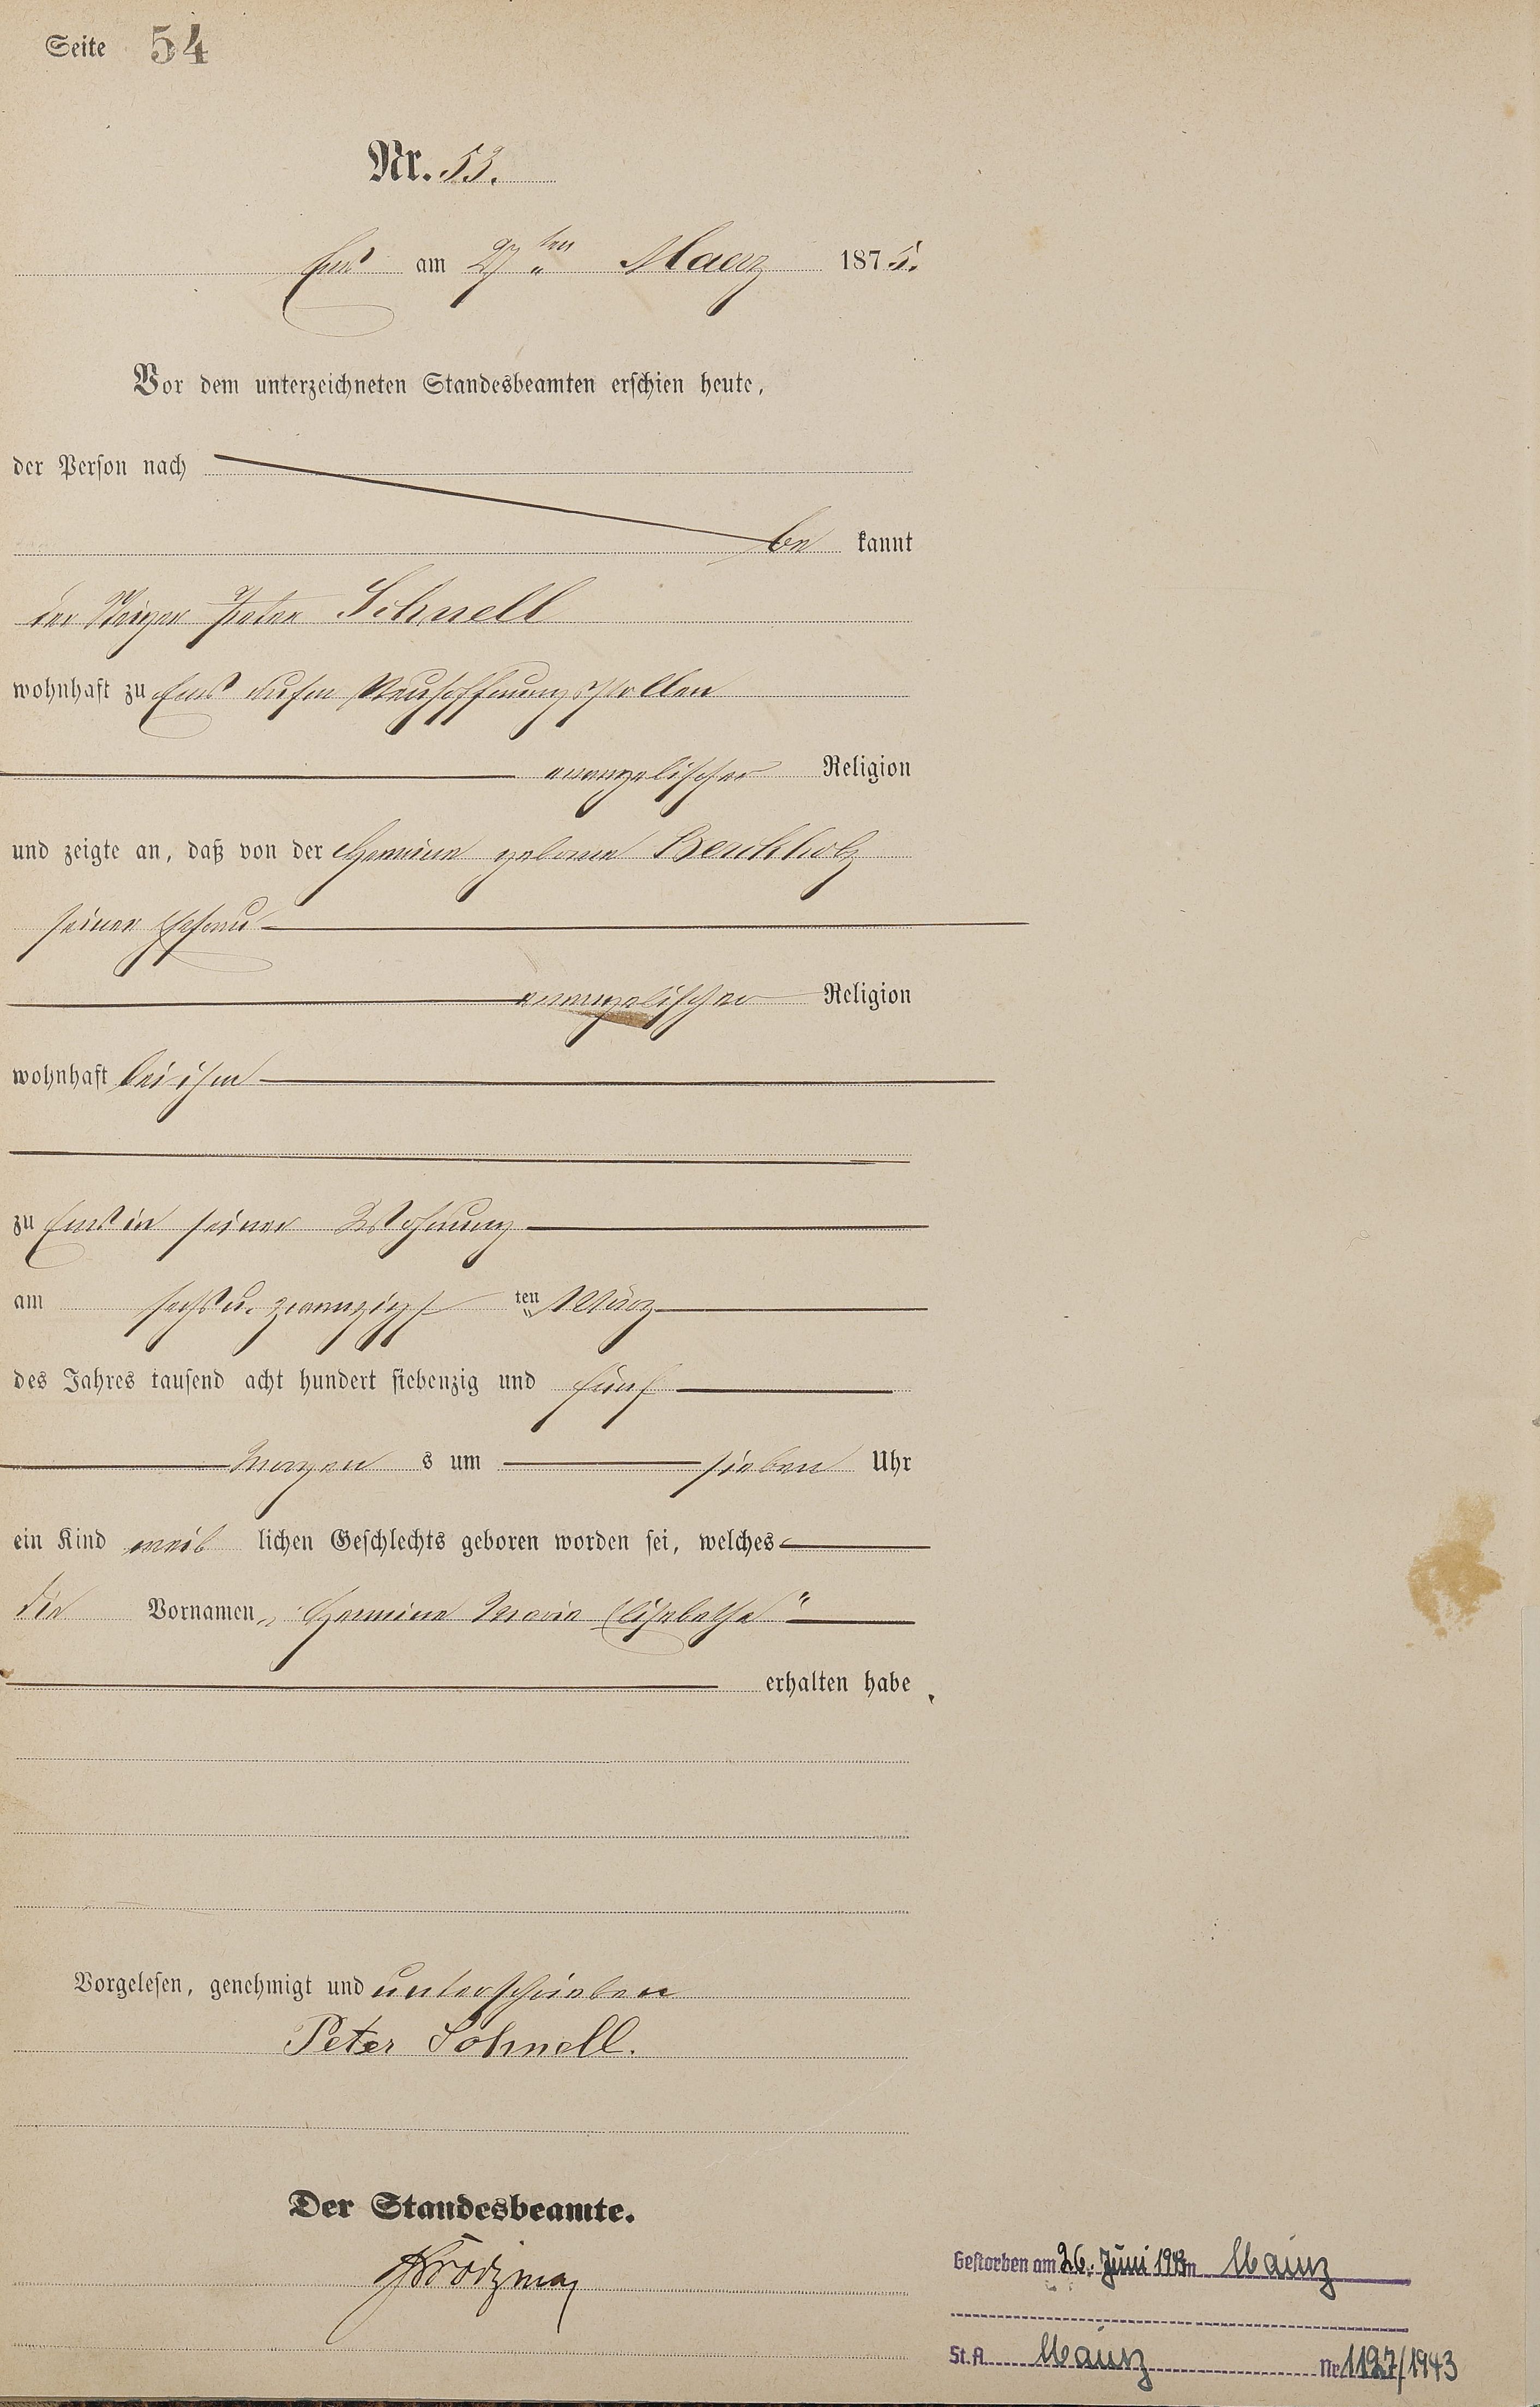 Seite 54
Nr. 53.
Ems am 27ten Maerz 1875.
Vor dem unterzeichneten Standesbeamten erschien heute,
der Person nach
be kannt
der Steiger Peter Schnell
wohnhaft zu Ems Neuhoffnungsstollen
evangelischer Religion
und zeigte an, daß von der Hermine geborne Berckholz
seiner Ehefrau
evangelischer Religion
wohnhaft bei ihm
zu Ems in seiner Wohnung
am sechsu. zwanzigst ten März
des Jahres tausend acht hundert siebenzig und fünf
Morgen s um sieben Uhr
ein Kind weib lichen Geschlechts geboren worden sei, welches
die Vornamen „Hermine Maria Elisabetha"
erhalten habe.
Vorgelesen, genehmigt und unterschrieben
Peter Schnell.
Der Standesbeamte.
Gestorben am 26. Juni 1943 in Mainz
St. A. Mainz Nr. 1127/1943